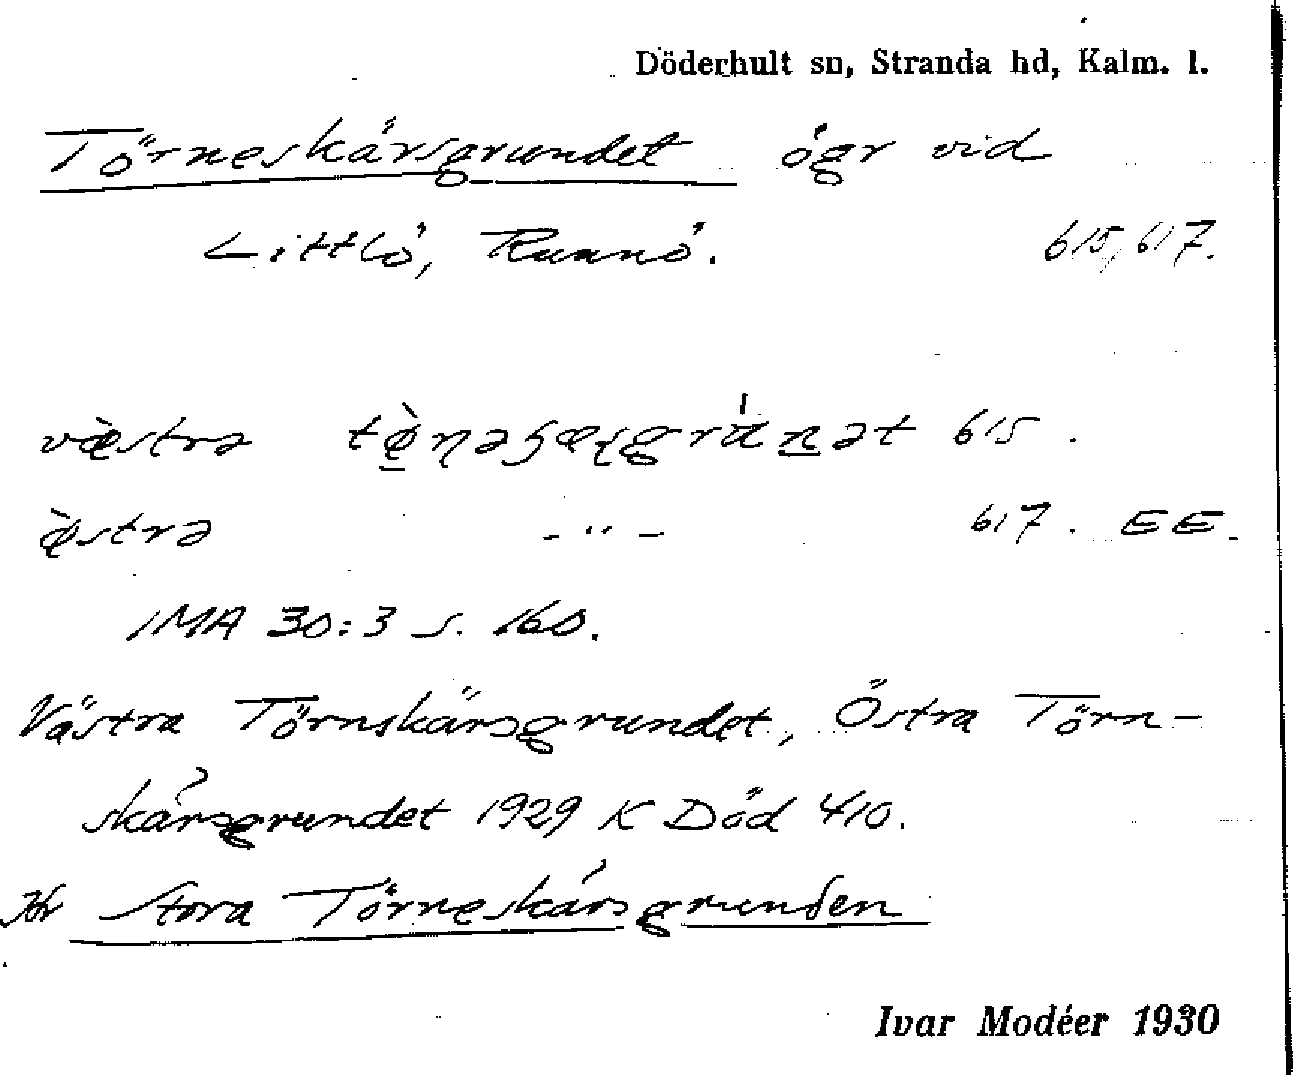 Döderhult sn, Stranda hd, Kalm. l.
Törneskärsgrundet ögr vid
Littlö, Runnö. 615, 617.
væ̀strə 615.
-"- 617. EE.
IMA 30:3 s. 160.
Västra Törnskärsgrundet, Östra Törn-
skärsgrundet 1929 K Död 410.
Jfr Stora Törneskärsgrunden
Ivar Modéer 1930